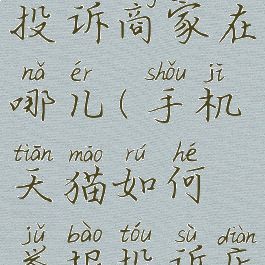 投诉商家在
nǎ ér shǒu jī
哪儿(手机
tiān māo rú hé
天猫如何
jǔ bào tóu sù diàn
举报投诉店